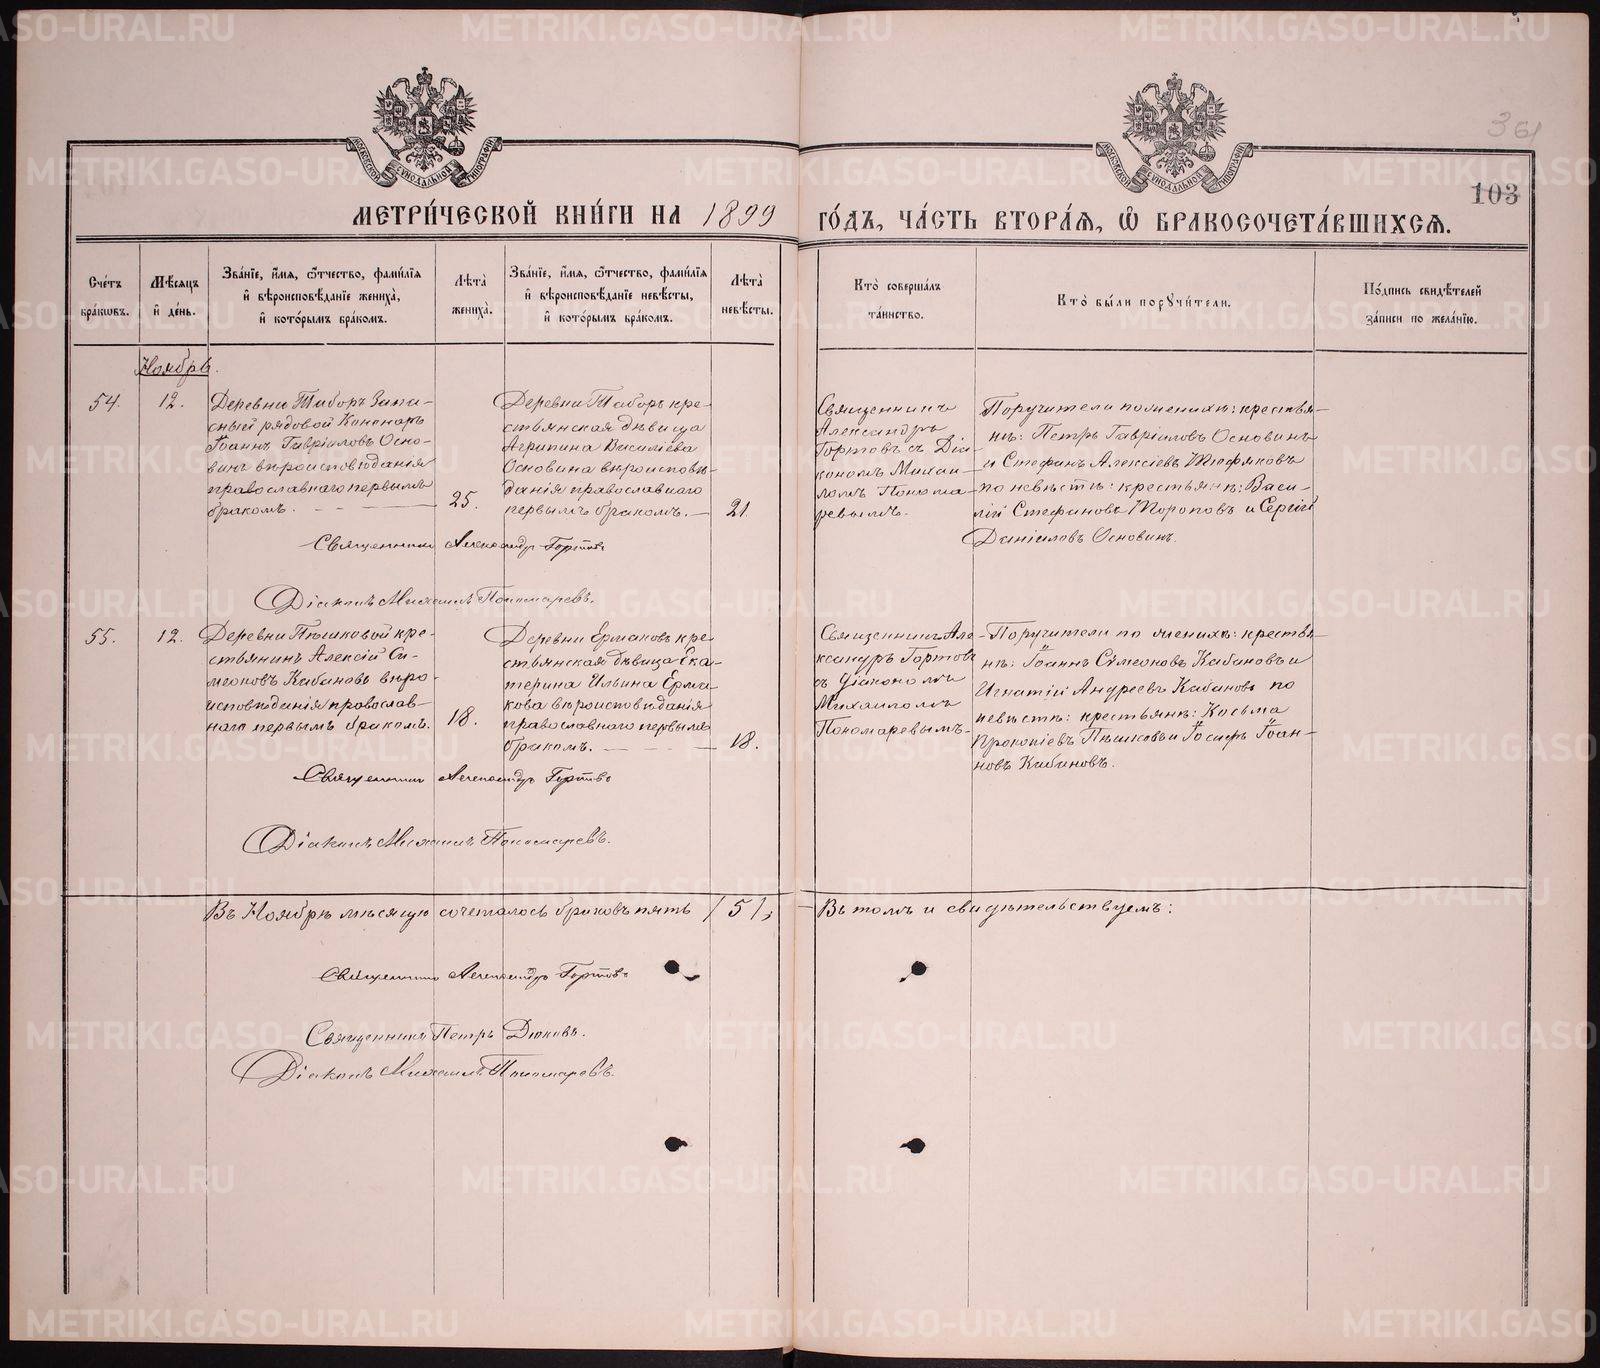 361
103
МОСКОВСКОЙ СѴНОДАЛЬНОЙ ТИПОГРАФІИ
МОСКОВСКОЙ СѴНОДАЛЬНОЙ ТИПОГРАФІИ
МЕТРИ́ЧЕСКОЙ КНИ́ГИ НА 1899 ГО́ДЪ, ЧА́СТЬ ВТОРА́Я, Ѡ БРАКОСОЧЕТА́ВШИХСЯ.
Сче́тъ бра́кѡвъ.
Мѣ́сяцъ и де́нь.
Зва́нїе, и́мя, ѻ́тчество, фами́лїя и вѣроисповѣ́данїе жениха̀, и кото́рымъ бра́комъ.
Лѣта̀ жениха̀.
Зва́нїе, и́мя, ѻ́тчество, фами́лїя и вѣроисповѣ́данїе невѣ́сты, и кото́рымъ бра́комъ.
Лѣта̀ невѣ́сты.
Кто̀ соверша́лъ та́инство.
Кто̀ бы́ли поручи́тели.
По́дпись свидѣ́телей за́писи по жела́нію.
Ноябрь.
54.
12.
Деревни Таборъ Запа-
сный рядовой Канониръ
Іоаннъ Гавріиловъ Осно-
винъ вѣроисповѣданія
православнаго первымъ
бракомъ.
25.
Деревни Таборъ кре-
стьянская дѣвица
Агрипина Василіева
Основина вѣроисповѣ-
данія православнаго
первымъ бракомъ.
21.
Священникъ
Александръ
Гортовъ съ Діа-
кономъ Михаи-
ломъ Понома-
ревымъ.
Поручители по женихѣ: крестья-
нѣ: Петръ Гавріиловъ Основинъ
и Стефанъ Алексіевъ Тюфяковъ
по невѣстѣ: крестьянѣ: Васи-
лій Стефановъ Тороповъ и Сергій
Даніиловъ Основинъ.
Священникъ Александръ Гортовъ
Діаконъ Михаилъ Пономаревъ.
55.
12.
Деревни Пѣшковой кре-
стьянинъ Алексій Си-
меоновъ Кабановъ вѣро-
исповѣданія православ-
наго первымъ бракомъ.
18.
Деревни Ермаковъ кре-
стьянская дѣвица Ека-
терина Ильина Ерма-
кова вѣроисповѣданія
православнаго первымъ
бракомъ.
18.
Священникъ Але-
ксандръ Гортовъ
съ Діакономъ
Михаиломъ
Пономаревымъ.
Поручители по женихѣ: крестья-
нѣ: Іоаннъ Симеоновъ Кабановъ и
Игнатій Андреевъ Кабановъ по
невѣстѣ: крестьянѣ: Косьма
Прокопіевъ Пѣшковъ и Іосифъ Іоан-
новъ Кабановъ.
Священникъ Александръ Гортовъ
Діаконъ Михаилъ Пономаревъ.
Въ Ноябрѣ мѣсяцѣ сочеталось браковъ пять /5/,
Въ томъ и свидѣтельствуемъ:
Священникъ Александръ Гортовъ
Священникъ Петръ Дюковъ.
Діаконъ Михаилъ Пономаревъ.
METRIKI.GASO-URAL.RU